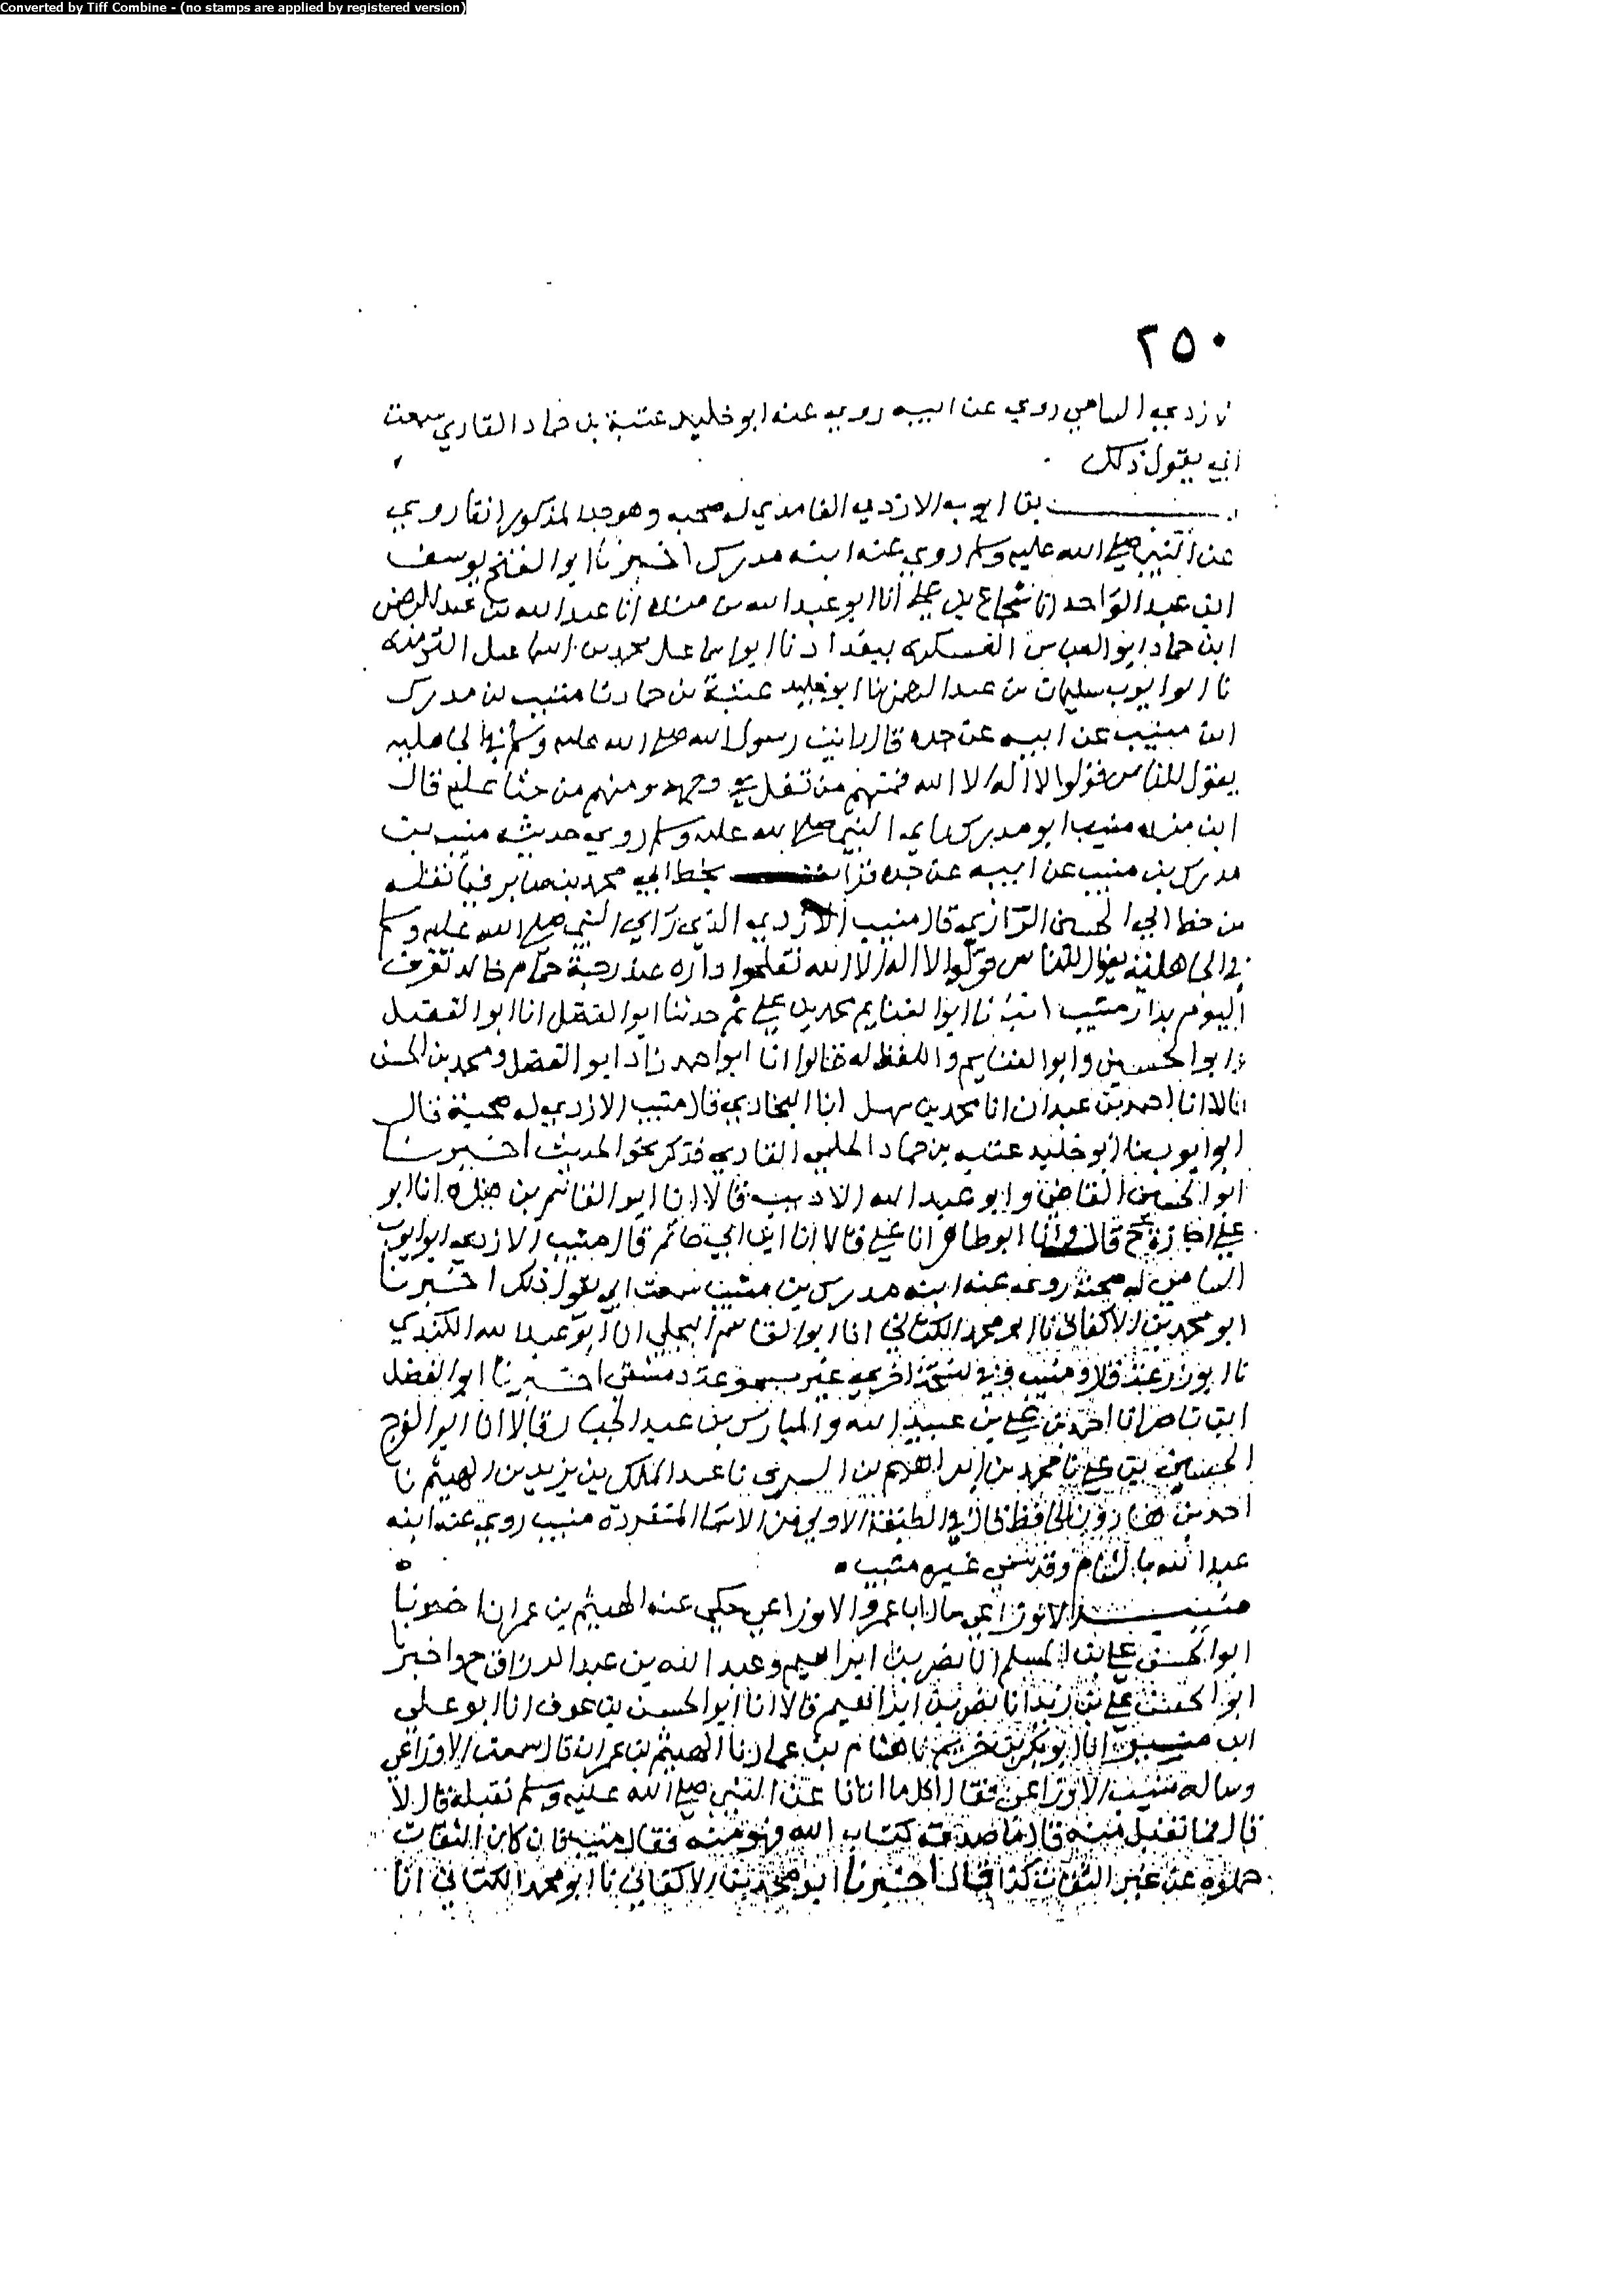 Converted by Tiff Combine - (no stamps are applied by registered version)
٢٥٠
الازدي الشامي روي عن ابيه روي عنه ابو خليد عتبة بن حماد القاري سمعت
ابي يقول ذلك
بن ايوب الازدي الغامدي له صحبه وهو جد المذكور انفا روي
عن النبي صلى الله عليه وسلم روي عنه ابنه مدرك اخبرنا ابو الفتح يوسف
ابن عبد الواحد انا شجاع بن علي انا ابو عبد الله بن منده انا عبد الله بن عبد الرحمن
ابن حماد ابو العباس العسكري ببغداد نا ابو اسماعيل محمد بن اسماعيل الترمذي
نا ابو ايوب سليمان بن عبد الرحمن نا ابو خليد عتبة بن حماد نا منيب بن مدرك
ابن منيب عن ابيه عن جده قال رايت رسول الله صلى الله عليه وسلم في الجاهليه
يقول للناس قولوا لا اله الا الله فمنهم من تفل في وجهه ومنهم من حثا عليه قال
ابن منده منيب ابو مدرك راي النبي صلى الله عليه وسلم روي حديثه منيب بن
مدرك بن منيب عن ابيه عن جده قرات بخط ابي محمد بن صابر فيما نقله
من خط ابي الحسين الرازي قال منيب الازدي الذي راي النبي صلى الله عليه وسلم
في الجاهلية يقول للناس قولوا لا اله الا الله تفلحوا داره عند رحبة حمام خالد تعرف
اليوم بدار منيب انبانا ابو الغنايم محمد بن علي ثم حدثنا ابو الفضل انا ابو الفضل
وابو الحسين وابو الغنايم واللفظ له قالوا انا ابو احمد زاد ابو الفضل ومحمد بن الحسن
قالا انا احمد بن عبدان انا محمد بن سهل انا البخاري قال منيب الازدي له صحبة قال
ابو ايوب نا ابو خليد عتبه بن حماد الحكمي القاري فذكر نحو الحديث اخبرنا
ابو الحسين القاضي وابو عبد الله الاديب قالا انا ابو القاسم بن منده انا ابو
علي اجازة ح قال وانا ابو طاهر انا علي قالا انا ابن ابي حاتم قال منيب الازدي ابو ايوب
الشامي له صحبة روي عنه ابنه مدرك بن منيب سمعت ابي يقول ذلك اخبرنا
ابو محمد بن الاكفاني نا ابو محمد الكتاني انا ابو القاسم البجلي انا ابو عبد الله الكندي
نا ابو زرعة قال ومنيب وفي نسخة اخري غير مسموعة دمشقي اخبرنا ابو الفضل
ابن ناصر انا احمد بن علي بن عبيد الله والمبارك بن عبد الجبار قالا انا ابو الفرج
الحسين بن علي نا محمد بن ابراهيم بن السري نا عبد الملك بن يزيد بن الهيثم نا
احمد بن هارون الحافظ قال في الطبقة الاولي من الاسما المنفردة منيب روي عنه ابنه
عبد الله بالشام وقد سمي غيره منيب
منيب الاوزاعي سال ابا عمرو الاوزاعي حكي عنه الهيثم بن عمران اخبرنا
ابو الحسن علي بن المسلم انا نصر بن ابراهيم وعبد الله بن عبد الرزاق ح واخبرنا
ابو الحسن علي بن زيد انا نصر بن ابراهيم قالا انا ابو الحسن بن عوف انا ابو علي
ابن منير انا ابو بكر بن خريم نا هشام بن عمار نا الهيثم بن عمران قال سمعت الاوزاعي
وساله منيب الاوزاعي فقال اكل ما اتانا عن النبي صلى الله عليه وسلم نقبله قال لا
قال فما نقبل منه قال ما صدقه كتاب الله فهو منه فقال منيب فان كان الثقات
حملوه عن غير الثقات كذا قال اخبرنا ابو محمد بن الاكفاني نا ابو محمد الكتاني انا